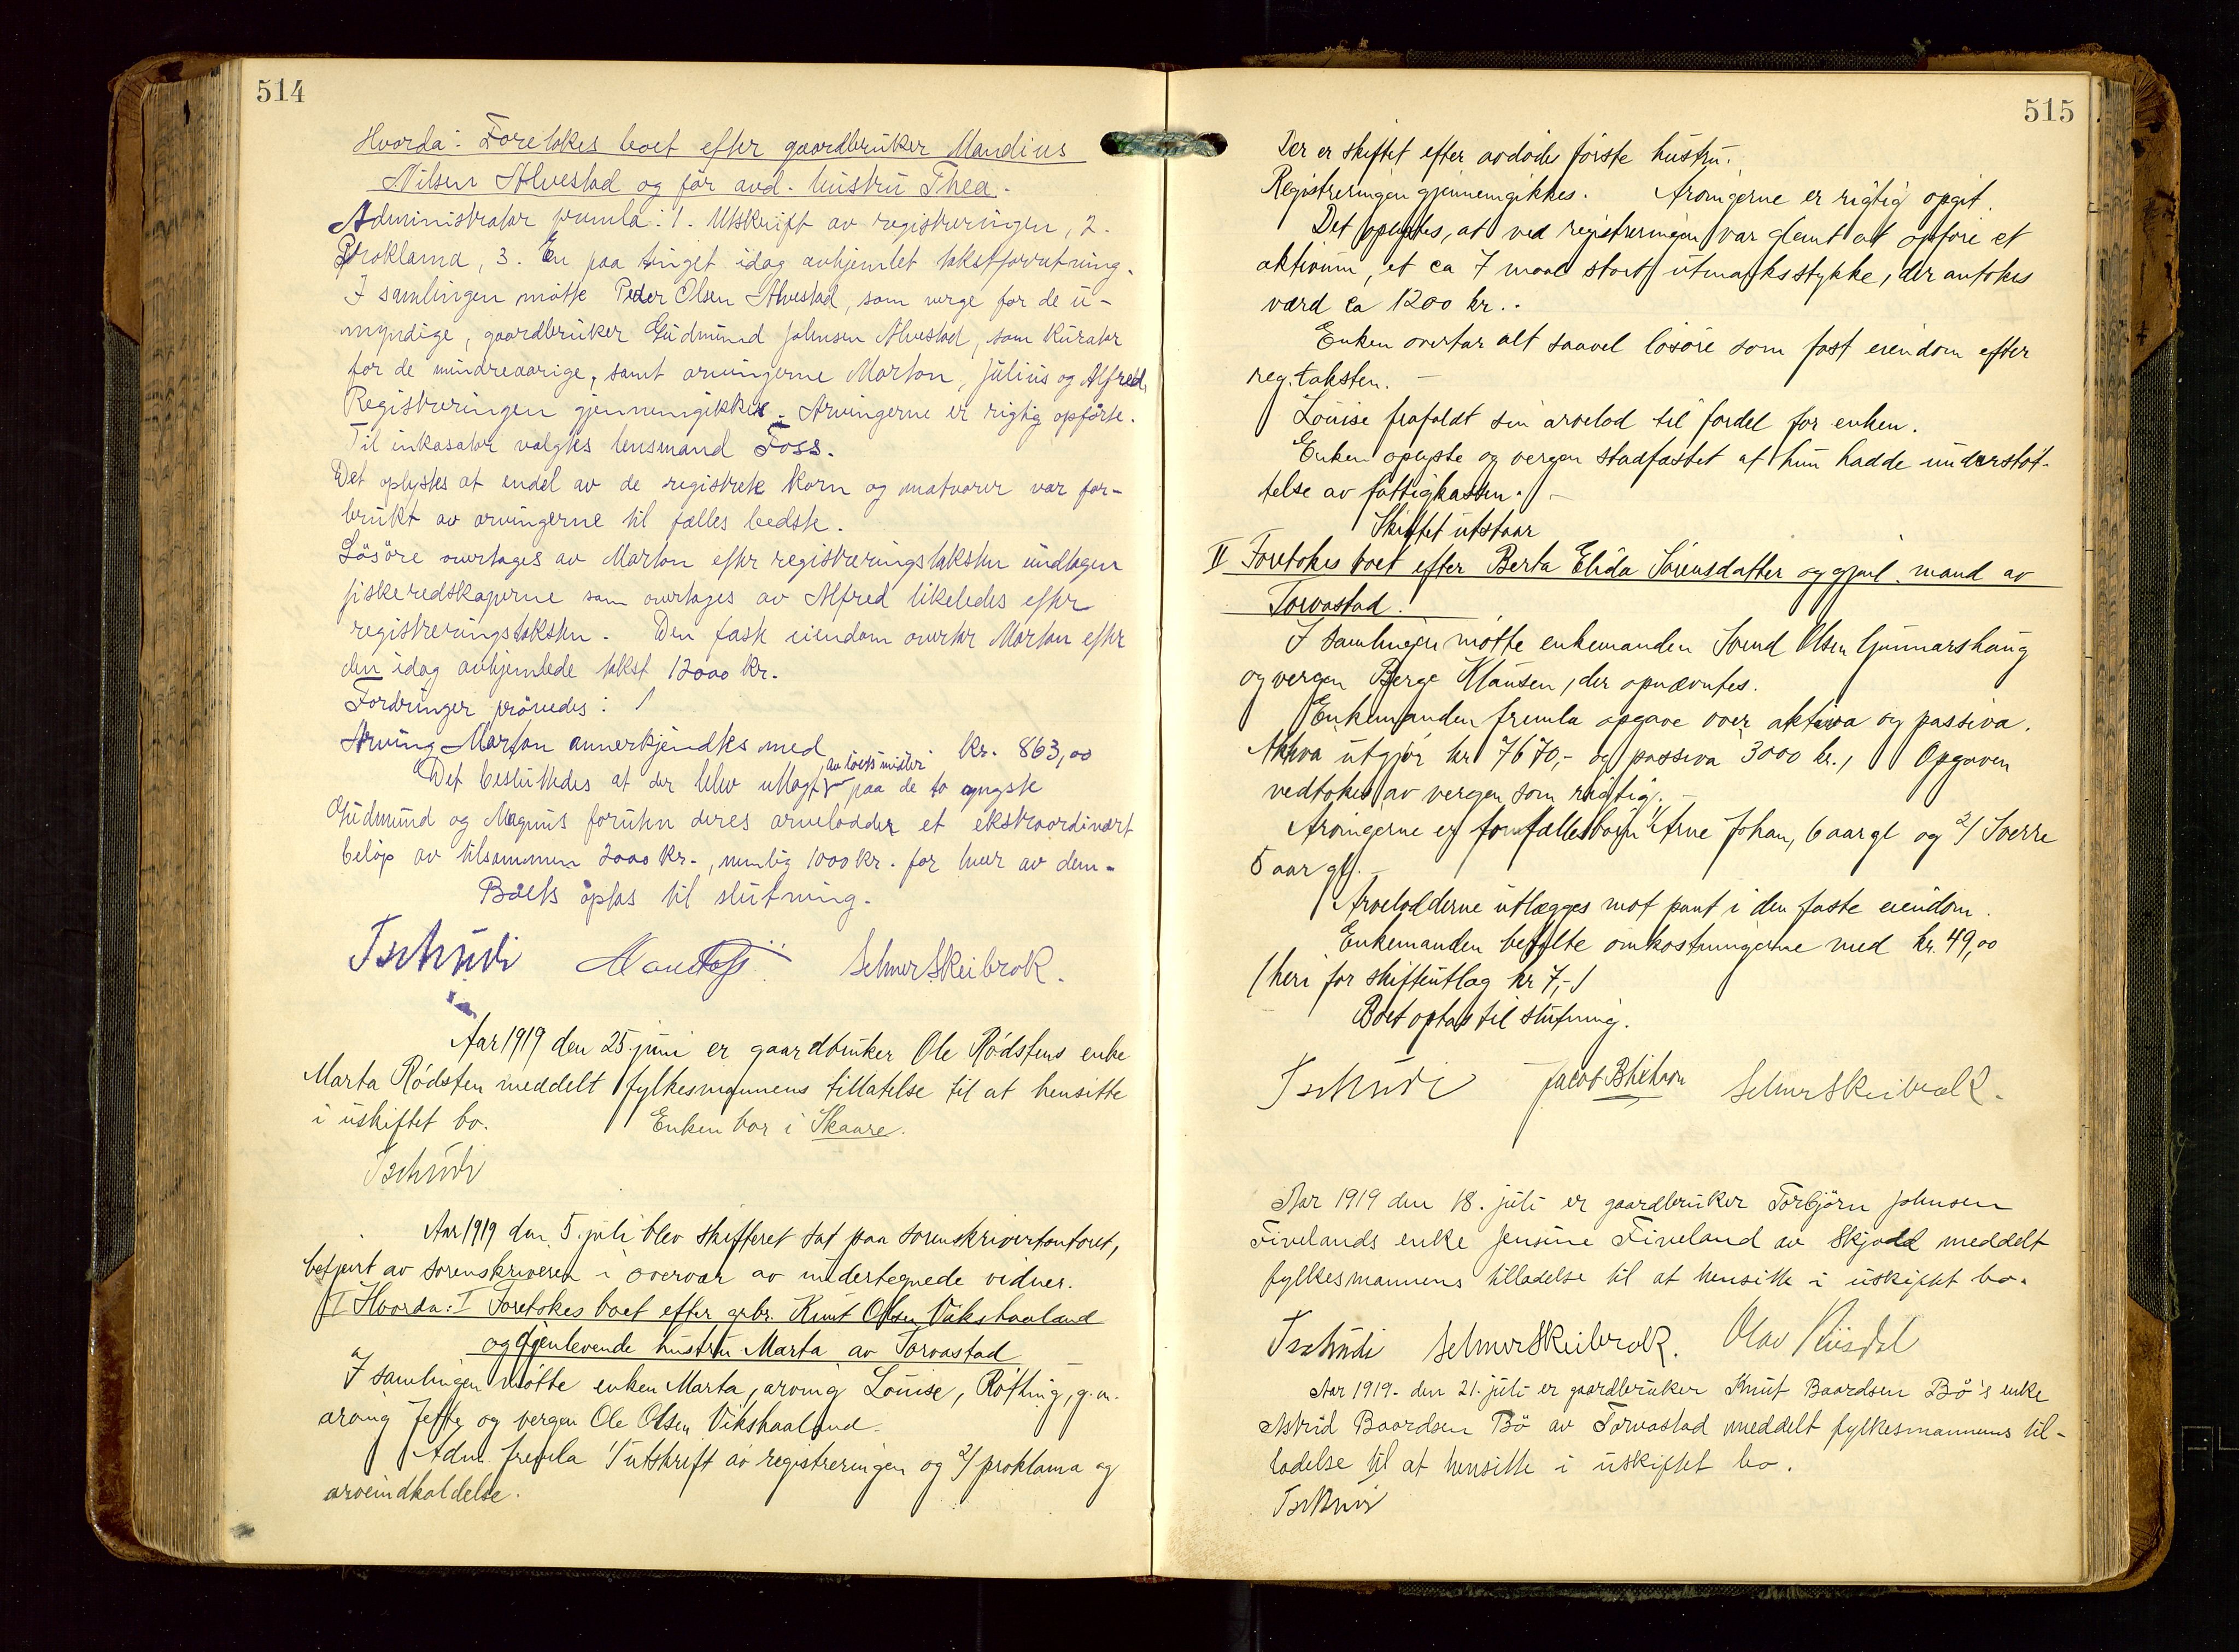 514
Hvorda: Foretokes boet efter gaardbruker Mandius
Nilsen Alvestad og før avd. hustru Thea.
Administrator fremla: 1. Utskrift av registreringen, 2.
Proklama, 3. En paa tinget idag avhjemlet takstforretning.
I samlingen møtte Peder Olsen Alvestad, som verge for de u-
myndige, gaardbruker Gudmund Johnsen Alvestad, som kurator
for de mindreaarige, samt arvingerne Marton, Julius og Alfred.
Registreringen gjennemgikkes. Arvingerne er rigtig opførte.
Til inkasator valgtes lensmand Foss.
Det oplystes at endel av de registrerte korn og matvarer var for-
brukt av arvingerne til fælles bedste.
Løsøre overtages av Marton efter registreringstaksten undtagen
fiskeredskaperne som overtages av Alfred likeledes efter
registreringstaksten. Den faste eiendom overtar Marton efter
den idag avhjemlede takst 12000 kr.
Fordringer prøvedes:
Arving Marton annerkjendtes med kr. 863,00
Det besluttedes at der blev utlagt av boets midler paa de to yngste
Gudmund og Magnus foruten deres arvelodder et ekstraordinært
beløp av tilsammen 2000 kr., nemlig 1000 kr. for hver av dem.
Boets optas til slutning.
Tschudi Selmer Skeibrok.
Aar 1919 den 25. juni er gaardbruker Ole Rødstens enke
Marta Rødsten meddelt fylkesmannens tillatelse til at hensitte
i uskiftet bo. Enken bor i Skaare.
Tschudi
Aar 1919 den 5. juli blev skifteret sat paa sorenskriverkontoret,
betjent av sorenskriveren i overvær av undertegnede vidner.
I Hvorda: I Foretokes boet efter grbr. Knut Olsen Vikshaaland
og gjenlevende hustru Marta av Torvastad
I samlingen møtte enken Marta, arving Louise, Røthing, g.m.
arving Jette og vergen Ole Olsen Vikshaaland.
Adm. fremla 1/ utskrift av registreringen og 2/ proklama og
arveindkaldelse.
515
Der er skiftet efter avdøde første hustru.
Registreringen gjennemgikkes. Arvingerne er rigtig opgit.
Det oplystes, at ved registreringen var glemt at opføre et
aktivum, et ca 7 maal stort utmarksstykke, der antokes
værd ca 1200 kr..
Enken overtar alt saavel løsøre som fast eiendom efter
reg. taksten.
Louise frafaldt sin arvelod til fordel for enken.
Enken oplyste og vergen stadfæstet at hun hadde understøt-
telse av fattigkassen.
Skiftet utstaar
II Foretokes boet efter Berta Elida Sørensdatter og gjenl. mand av
Torvastad.
I samlingen møtte enkemanden Svend Olsen Gunnarshaug
og vergen Berge Klausen, der opnævntes.
Enkemanden fremla opgave over aktiva og passiva.
Aktiva utgjør kr 7670,- og passiva 3000 kr., Opgaven
vedtokes av vergen som rigtig.
Arvingerne er fællesbarn 1/ Arne Johan, 6 aar gl og 2/ Sverre
5 aar gl.
Arvelodderne utlægges mot pant i den faste eiendom.
Enkemanden betalte omkostningerne med kr. 49,00
(heri for skifteutlæg kr 7,-)
Boet optas til slutning.
Tschudi Selmer Skeibrok.
Aar 1919 den 18. juli er gaardbruker Torbjørn Johnsen
Fivelands enke Jensine Fiveland av Skjold meddelt
fylkesmannens tilladelse til at hensitte i uskiftet bo.
Tschudi Selmer Skeibrok. Olav
Aar 1919. den 21. juli er gaardbruker Knut Baardsen Bø's enke
Astrid Baardsen Bø av Torvastad meddelt fylkesmannens til-
ladelse til at hensitte i uskiftet bo.
Tschudi